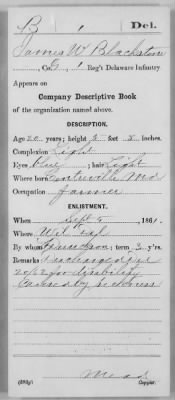 B 1 Del.
James W Blackston
, Co. G, 1 Reg't Delaware Infantry.
Appears on
Company Descriptive Book
of the organization named above.
DESCRIPTION.
Age 20 years; height 5 feet 5 inches.
Complexion Light
Eyes Blue; hair Light
Where born Centreville Md
Occupation Farmer
ENLISTMENT.
When Sept 6, 1861.
Where Wil Del
By whom; term 3 y'rs.
Remarks Discharged
for disability
caused by sickness
Copyist.